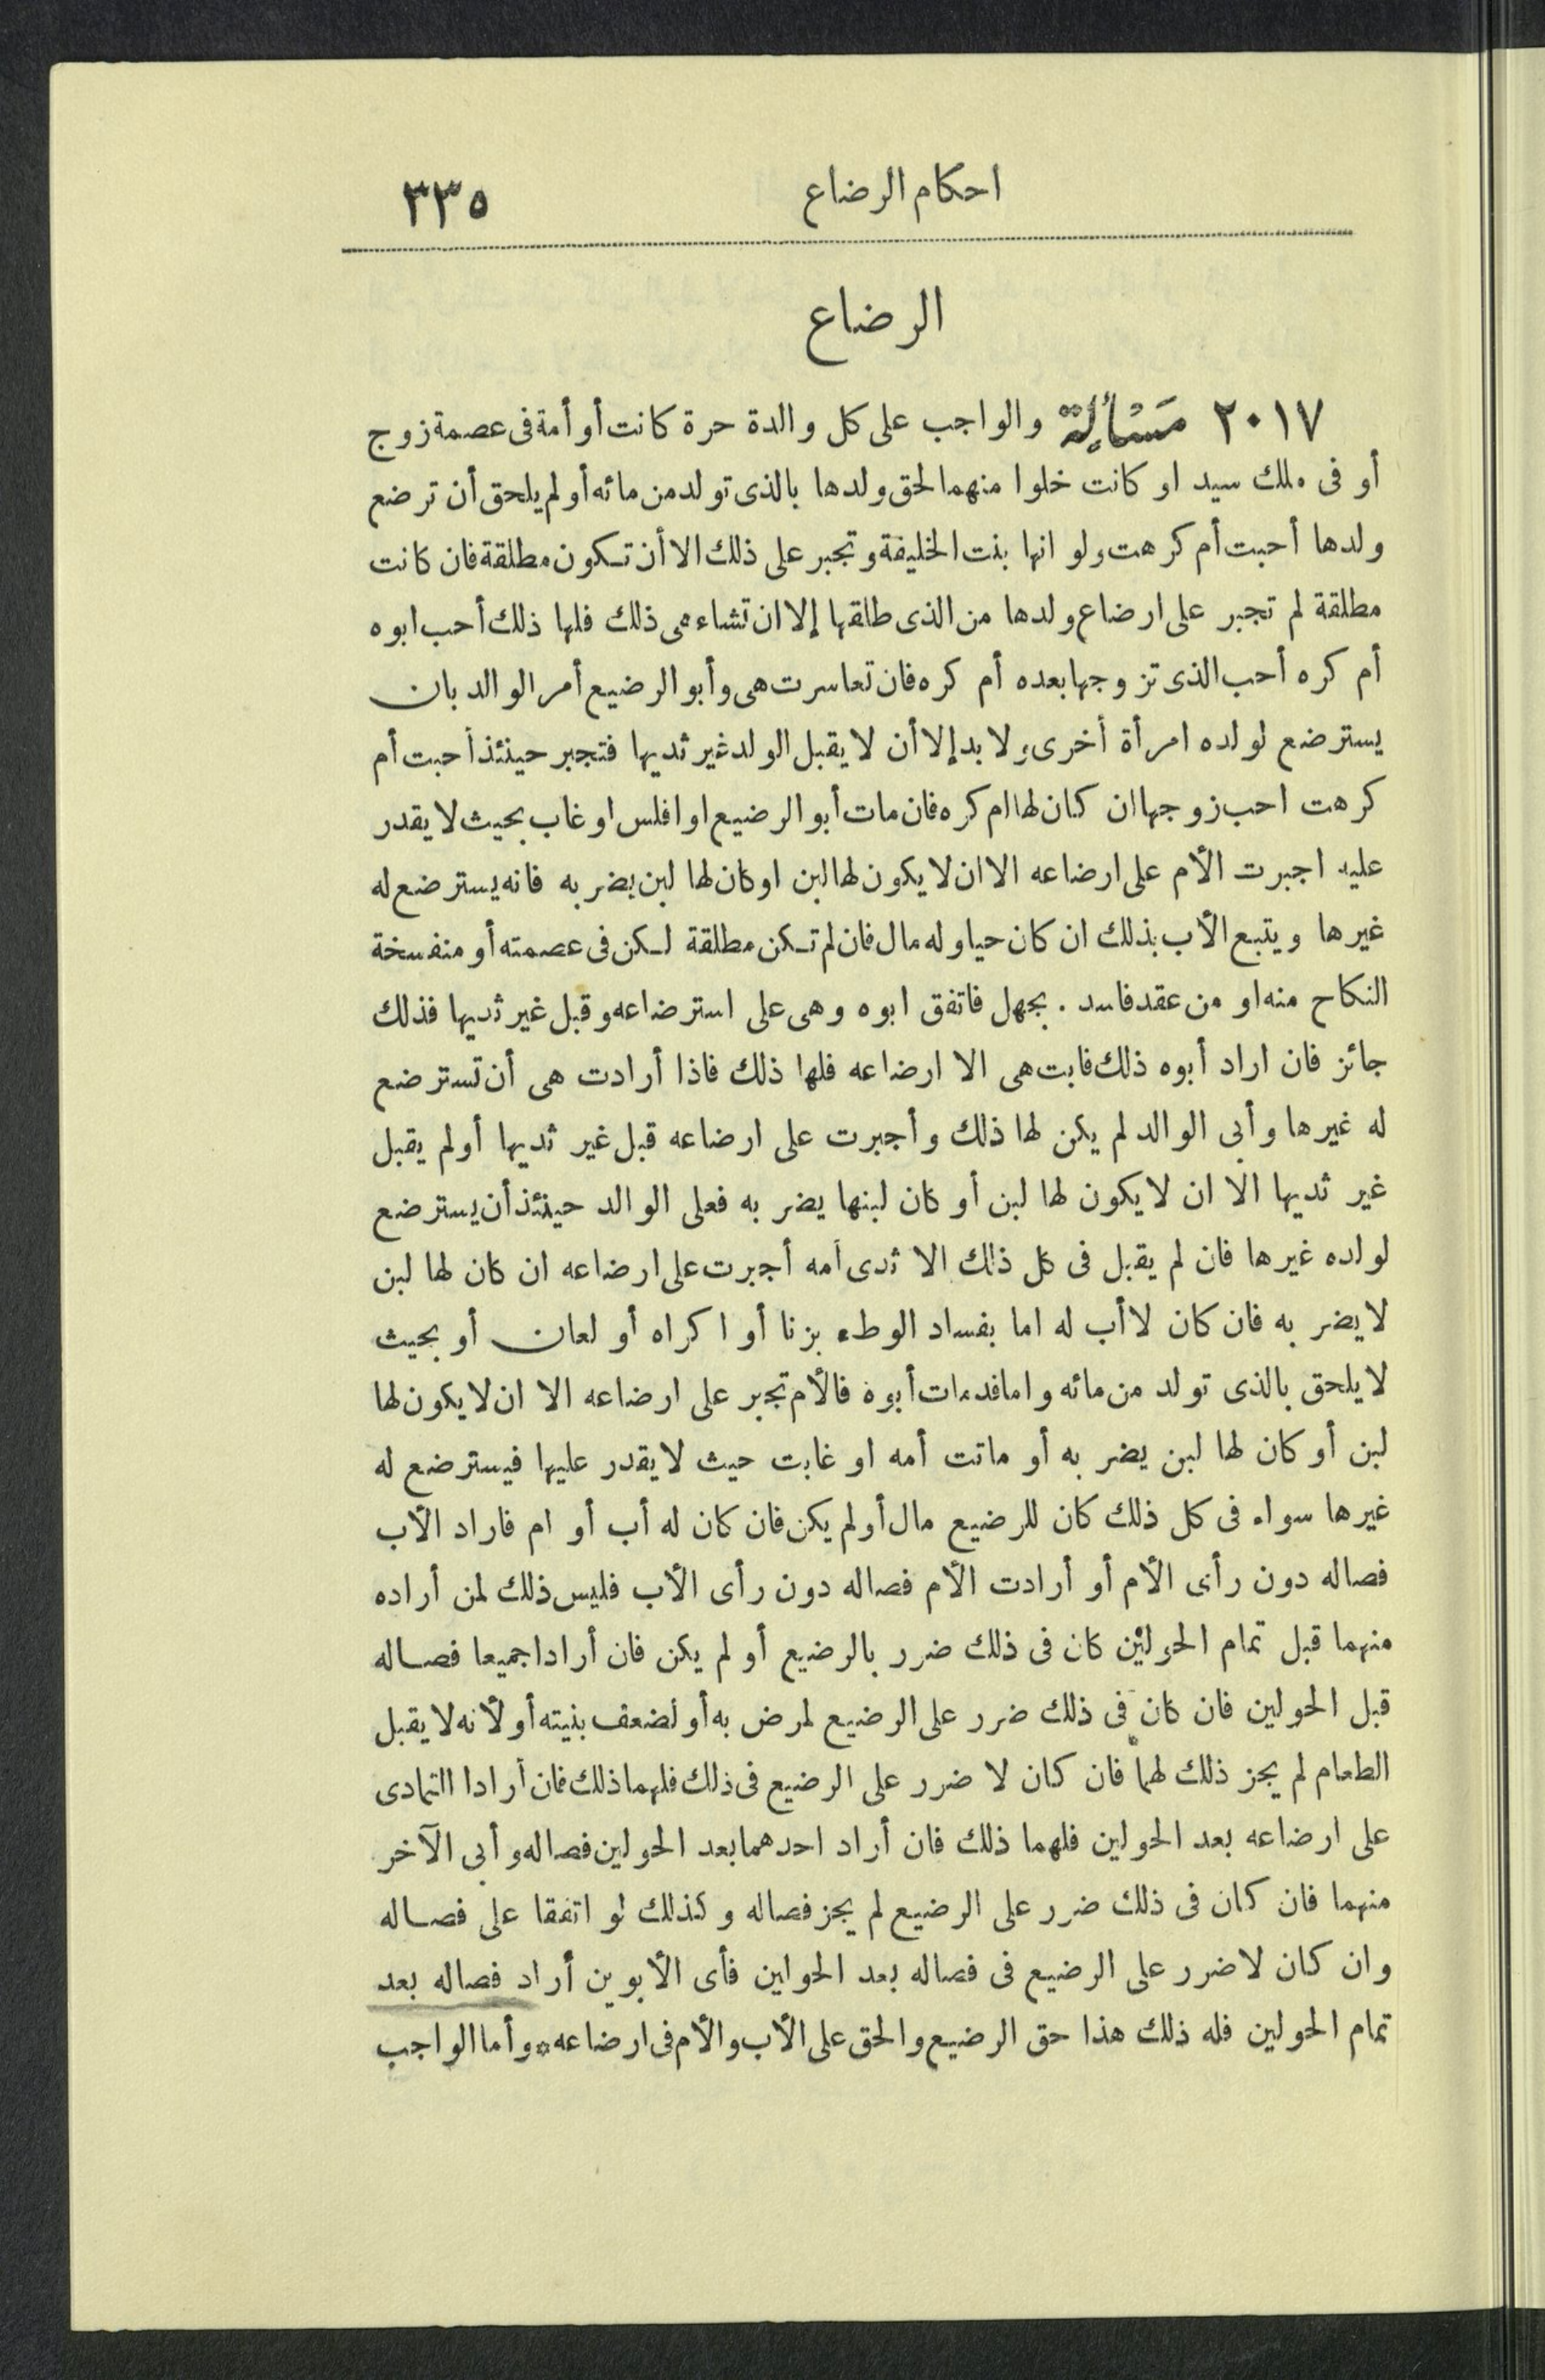 احكام الرضاع ٣٣٥
الرضاع
٢٠١٧ مَسْأَلِة والواجب على كل والدة حرة كانت أو أمة فى عصمة زوج
أو فى ملك سيد او كانت خلوا منهما لحق ولدها بالذى تولد من مائه أو لم يلحق أن ترضع
ولدها أحبت أم كرهت ولو انها بنت الخليفة وتجبر على ذلك الا أن تكون مطلقة فان كانت
مطلقة لم تجبر على ارضاع ولدها من الذى طلقها إلا ان تشاء هى ذلك فلها ذلك أحب ابوه
أم كره أحب الذى تزوجها بعده أم كره فان تعاسرت هى وأبو الرضيع أمر الوالد بان
يسترضع لولده امرأة أخرى ولا بد إلا أن لا يقبل الولد غير ثديها فتجبر حينئذ أحبت أم
كرهت احب زوجها ان كان لها ام كره فان مات أبو الرضيع او افلس او غاب بحيث لا يقدر
عليه اجبرت الأم على ارضاعه الا ان لا يكون لها لبن او كان لها لبن يضر به فانه يسترضع له
غيرها ويتبع الأب بذلك ان كان حيا وله مال فان لم تكن مطلقة لكن فى عصمته أو منفسخة
النكاح منه او من عقد فاسد . بجهل فاتفق ابوه وهى على استرضاعه وقبل غير ثديها فذلك
جائز فان اراد أبوه ذلك فابت هى الا ارضاعه فلها ذلك فاذا أرادت هى أن تسترضع
له غيرها وأبى الوالد لم يكن لها ذلك وأجبرت على ارضاعه قبل غير ثديها أو لم يقبل
غير ثديها الا ان لا يكون لها لبن أو كان لبنها يضر به فعلى الوالد حينئذ أن يسترضع
لولده غيرها فان لم يقبل فى كل ذلك الا ثدى أمه أجبرت على ارضاعه ان كان لها لبن
لا يضر به فان كان لا أب له اما بفساد الوطء بزنا أو اكراه أو لعان أو بحيث
لا يلحق بالذى تولد من مائه واما فد مات أبوه فالأم تجبر على ارضاعه الا ان لا يكون لها
لبن أو كان لها لبن يضر به أو ماتت أمه او غابت حيث لا يقدر عليها فيسترضع له
غيرها سواء فى كل ذلك كان للرضيع مال أو لم يكن فان كان له أب أو ام فاراد الأب
فصاله دون رأى الأم أو أرادت الأم فصاله دون رأى الأب فليس ذلك لمن أراده
منهما قبل تمام الحولين كان فى ذلك ضرر بالرضيع أو لم يكن فان أرادا جميعا فصاله
قبل الحولين فان كان فى ذلك ضرر على الرضيع لمرض به أو لضعف بنيته أو لأنه لا يقبل
الطعام لم يجز ذلك لهما فان كان لا ضرر على الرضيع فى ذلك فلهما ذلك فان أرادا التمادى
على ارضاعه بعد الحولين فلهما ذلك فان أراد احدهما بعد الحولين فصاله وأبى الآخر
منهما فان كان فى ذلك ضرر على الرضيع لم يجز فصاله وكذلك لو اتفقا على فصاله
وان كان لا ضرر على الرضيع فى فصاله بعد الحولين فأى الأبوين أراد فصاله بعد
تمام الحولين فله ذلك هذا حق الرضيع والحق على الأب والأم فى ارضاعه * وأما الواجب